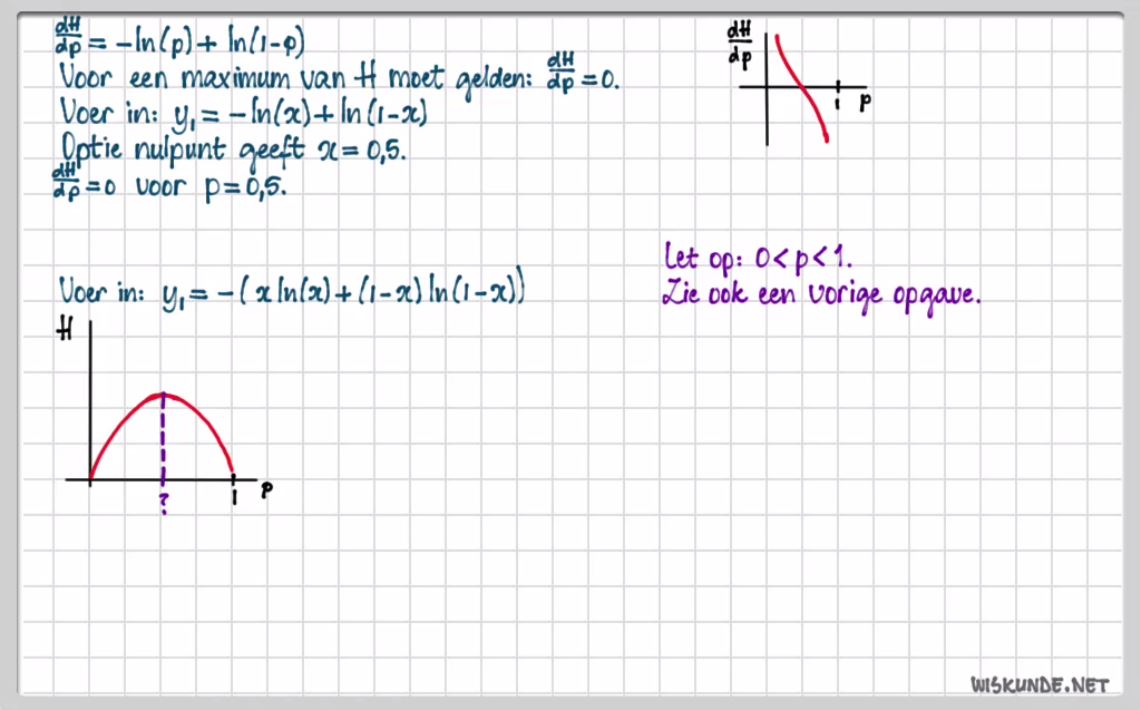 dH/dp = -ln(p) + ln(1-p)
Voor een maximum van H moet gelden: dH/dp = 0.
Voer in: y₁ = -ln(x) + ln(1-x)
Optie nulpunt geeft x = 0,5.
dH/dp = 0 voor p = 0,5.
dH/dp
1 p
Let op: 0 < p < 1.
Zie ook een vorige opgave.
Voer in: y₁ = -( x ln(x) + (1-x) ln(1-x))
H
? 1 p
WISKUNDE.NET